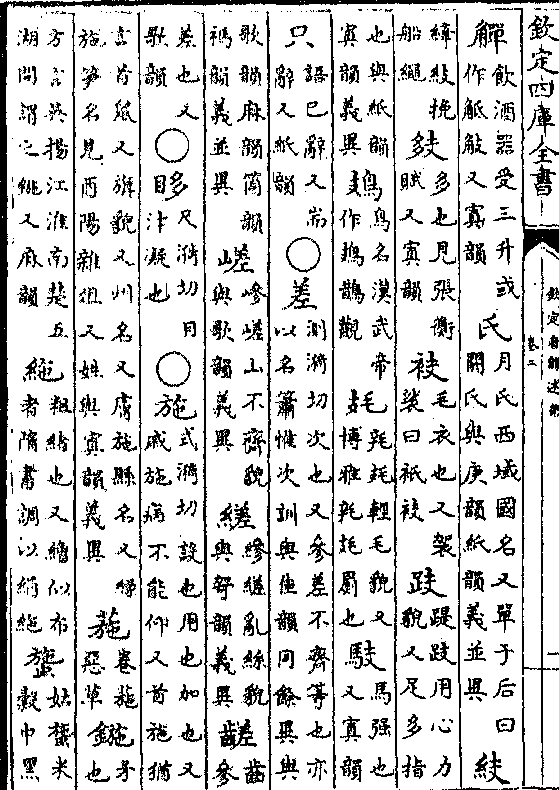 欽定四庫全書
欽定音韻述微
卷二
觶飲酒器受三升或作觝觙又寘韻 氏月氏西域國名又單于后曰閼氏與庚韻紙韻義並異
挽船繩 多也見張衡賦又寘韻 衼毛衣也又袈裟曰祇衼 跂踶跂用心力貌又足多指
也與紙韻寘韻義異 鳷鳥名漢武帝作鳷鵲觀 輕毛貌又博雅罽也 馶馬强也又寘韻
只語巳辭又耑辭又紙韻 ○差測漪切次也又參差不齊等也亦以名簫惟次訓與佳韻同餘異與
歌韻麻韻箇韻禡韻義並異 嵯嵾嵯山不齊貌與歌韻義異 縒縿縒亂絲貌與哿韻義異 齹齒參
差也又歌韻 ○眵尺漪切目汁凝也 ○施式漪切設也用也加也又戚施病不能仰又首施猶
言首鼠又旖貌又州名又膚施縣名又緜施筝名見酉陽雜俎又姓與寘韻義異 葹卷葹惡草 鍦矛也
方言吳揚江淮南楚五湖間謂之鍦又麻韻 絁粗紬也又繒似布者隋書調以絹絁 姑米穀巾黑